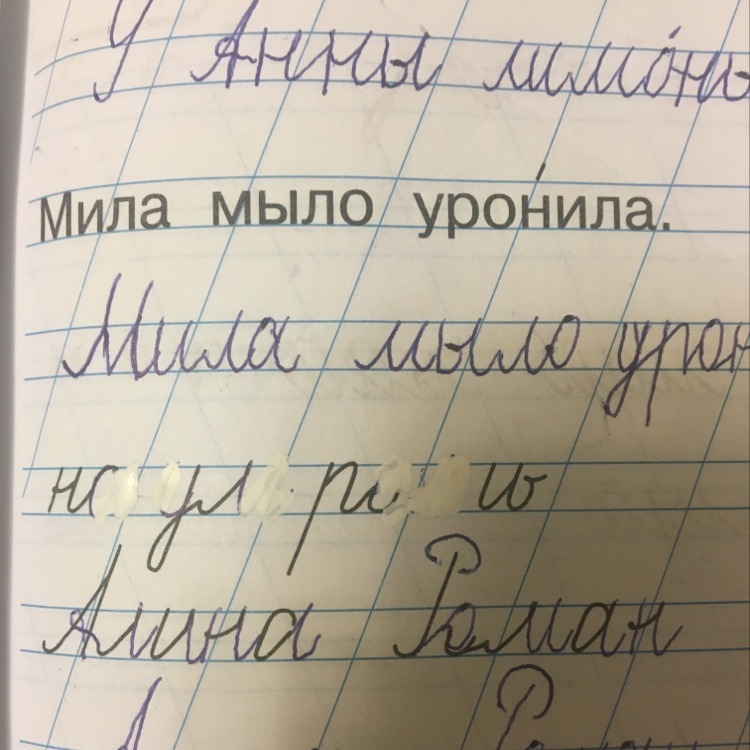 У Анны лимо́ны
Мила мыло уро́нила.
Мила мыло урон
Алина Роман